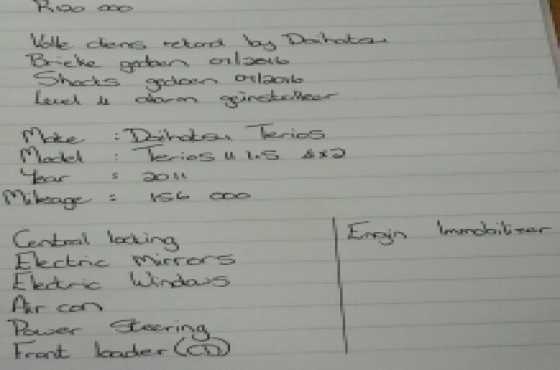 R120 000
Volle diens rekord by Daihatsu
Brieke gedoen 01/2016
Shocks gedoen 01/2016
Level 4 alarm geinstalleer
Make : Daihatsu Terios
Model : Terios II 1.5 4x2
Year : 2011
Mileage : 156 000
Central locking
Engin Immobilizer
Electric Mirrors
Electric Windows
Air con
Power Steering
Front loader (CD)